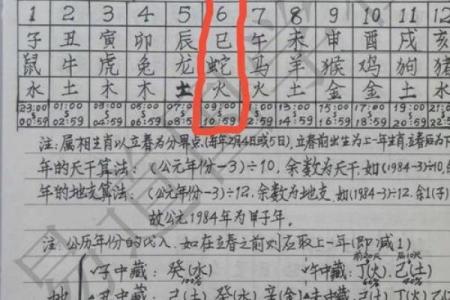 1 2 3 4 5 6 7 8 9 10 11 12
子 丑 寅 卯 辰 巳 午 未 申 酉 戌 亥
鼠 牛 虎 兔 龙 蛇 马 羊 猴 鸡 狗 猪
水 土 木 木 土 火 火 土 金 金 土 水
23:00 01:00 03:00 05:00 07:00 09:00 11:00 13:00 15:00 17:00 19:00
00:59 02:59 04:59 06:59 08:59 10:59 12:59 14:59 16:59 18:59 20:59
注:属相生肖以立春为分界点(每年2月4或5日),立春前出生为上一年生肖,立春后为下
年的天干算法:(公元年份-3)÷10,余数为天干,如(1984-3)÷10,余
年的地支算法:(公元年份-3)÷12,余数为地支,如(1984-3)÷12,余1(子)
故公元1984年为甲子年。
注:公历年份的代入,如在立春之前则应取上一年(即减1)
子中藏:癸(水) 午中藏:丁(火)己(土)
100% 60%
丑中藏:己(土)癸(水)辛(金)